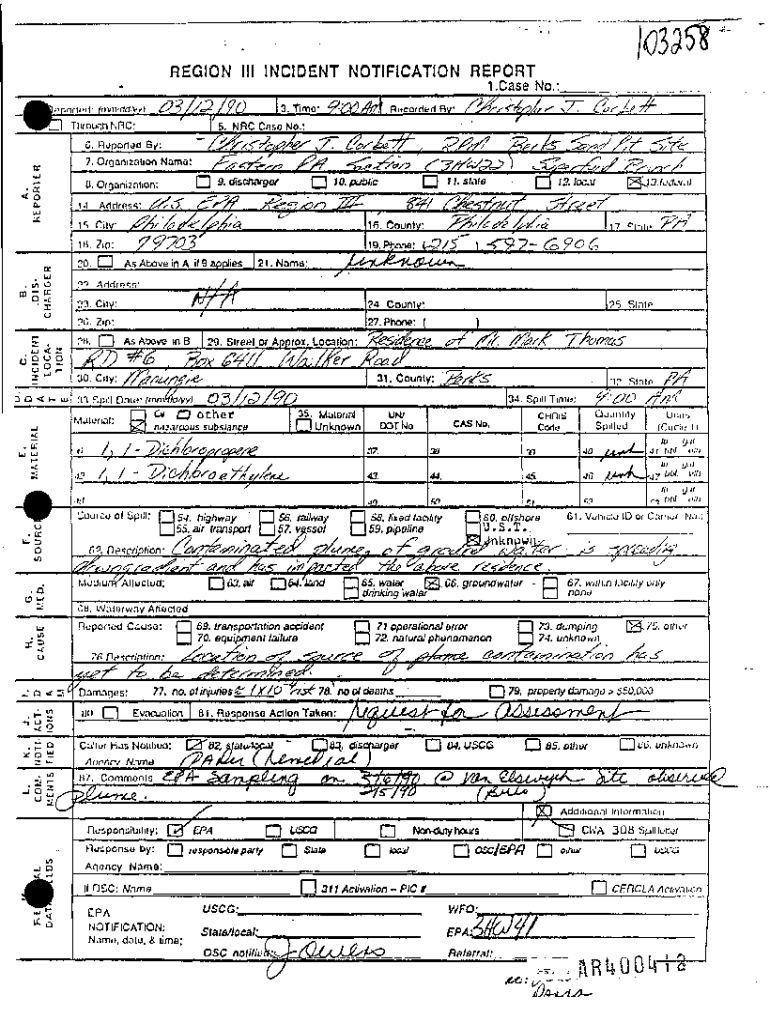 103258
REGION III INCIDENT NOTIFICATION REPORT
1.Case No.:
Reported: (mm/dd/yy) 03/12/90 3. Time: 9:00 Am Recorded By: Christopher J. Corbett
Through NRC: 5. NRC Case No.:
A. REPORTER
6. Reported By: Christopher J. Corbett, RPM Berks Sand Pit Site
7. Organization Name: Eastern PA Section (3HW22) Superfund Branch
8. Organization: 9. discharger 10. public 11. state 12. local 13. federal
14. Address: U.S. EPA Region III 841 Chestnut Street
15. City: Philadelphia 16. County: Philadelphia 17. State PA
18. Zip: 19703 19. Phone: (215) 597-6906
B. DIS-CHARGER
20. As Above in A if 9 applies 21. Name: unknown
22. Address:
23. City: N/A 24. County: 25. State
26. Zip: 27. Phone: ( )
C. INCIDENT LOCA-TION
28. As Above in B 29. Street or Approx. Location: Residence of Mr. Mark Thomas
RD #6 Box 6411 Walker Road
30. City: 31. County: Berks 32. State PA
D. DATE 33. Spill Date: (mm/dd/yy) 03/12/90 34. Spill Time: 9:00 Am
E. MATERIAL
Material: Oil other 35. Material UN/ CAS No. CHRIS Quantity Units
hazardous substance Unknown DOT No Code Spilled (Circle 1)
1,1-Dichloropropene 37. 38. 39. 40. unk 41. bbl
42. 1,1-Dichloroethylene 43. 44. 45. 46. unk 47. bbl
48. 49. 50. 51. 52. 53. bbl
F. SOURCE
Source of Spill: 54. highway 56. railway 58. fixed facility 60. offshore 61. Vehicle ID or Carrier No.:
55. air transport 57. vessel 59. pipeline U.S.T.
Unknown
62. Description: Contaminated plume, of ground water is spreading
downgradient and has impacted the above residence.
G. MED.
Medium Affected: 63. air 64. land 65. water 66. groundwater - 67. within facility only
drinking water none
68. Waterway Affected
H. CAUSE
Reported Cause: 69. transportation accident 71 operational error 73. dumping 75. other
70. equipment failure 72. natural phenomenon 74. unknown
76. Description: Location of source of plume contamination has
yet to be determined.
I. DAM Damages: 77. no. of injuries risk 78. no of deaths 79. property damage > $50,000
J. ACT-IONS 80 Evacuation 81. Response Action Taken: request for assessment
K. NOTI-FIED Caller Has Notified: 82. state/local 83. discharger 84. USCG 85. other 86. unknown
Agency Name PADER (Remedial)
L. COM-MENTS 87. Comments EPA Sampling on 3/6/90 @ Van Elswyck Site observed
plume. 3/5/90
Additional Information
Responsibility: EPA USCG Non-duty hours CWA 308 Spill letter
Response by: responsible party State local OSC/EPA other USCG
Agency Name:
If OSC: Name 311 Activation – PIC # CERCLA Activation
EPA USCG: WFO:
NOTIFICATION: State/local: EPA: 3HW41
Name, date, & time: OSC notified: J Owens Referral:
AR400412